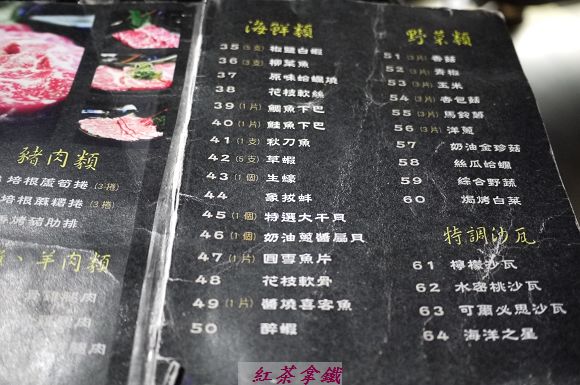 海鮮類
35 (5支) 椒鹽白蝦
36 (3支) 柳葉魚
37 原味蛤蠣燒
38 花枝軟絲
39 (1片) 鯛魚下巴
40 (1片) 鮭魚下巴
41 (1支) 秋刀魚
42 (5支) 草蝦
43 (1個) 生蠔
44 象拔蚌
45 (1個) 特選大干貝
46 (1個) 奶油蔥醬扇貝
47 (1片) 圓雪魚片
48 花枝軟骨
49 (1片) 醬燒喜客魚
50 醉蝦
野菜類
51 (3片) 香菇
52 (3片) 青椒
53 (3片) 玉米
54 (3片) 杏包菇
55 (3片) 馬鈴薯
56 (3片) 洋蔥
57 奶油金珍菇
58 絲瓜蛤蠣
59 綜合野蔬
60 焗烤白菜
特調沙瓦
61 檸檬沙瓦
62 水密桃沙瓦
63 可爾必思沙瓦
64 海洋之星
豬肉類
培根蘆筍捲 (3捲)
培根麻糬捲 (3捲)
烤豬肋排
、羊肉類
腿肉
肉
肉
紅茶拿鐵